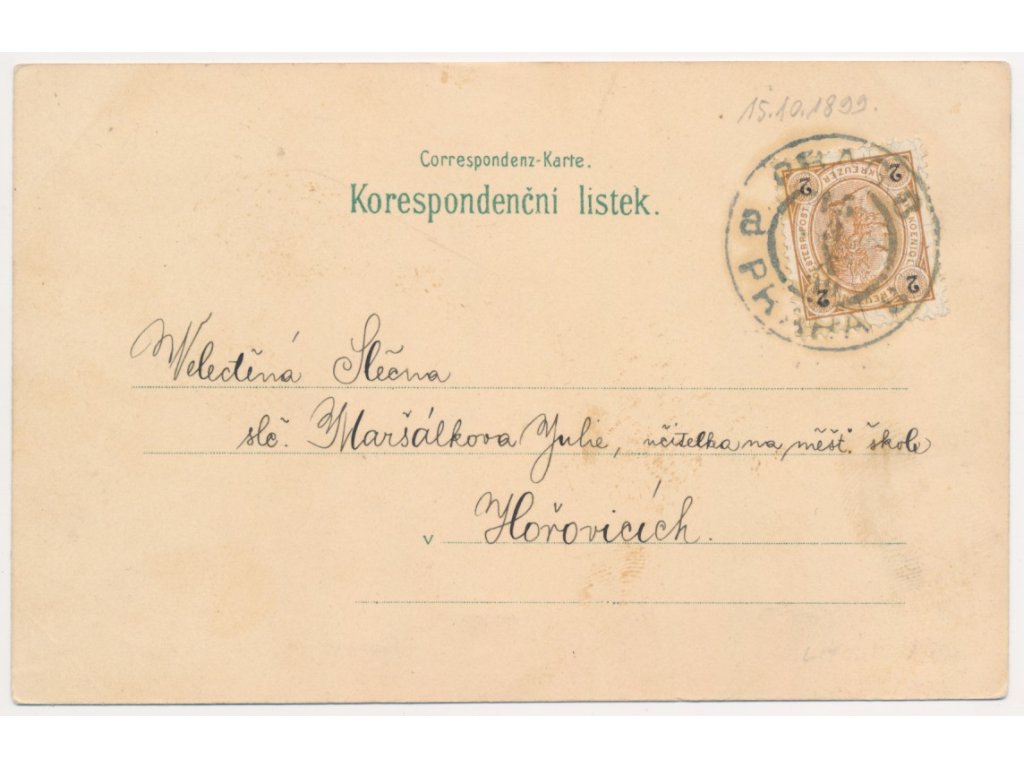 15.10.1899.
Correspondenz-Karte.
Korespondenční listek.
2 KREUZER 2
2 2
PRAHA
a
Velectěná Slečna
slč. Maršálkova Julie, učitelka na měšť. škole
v Hořovicích.